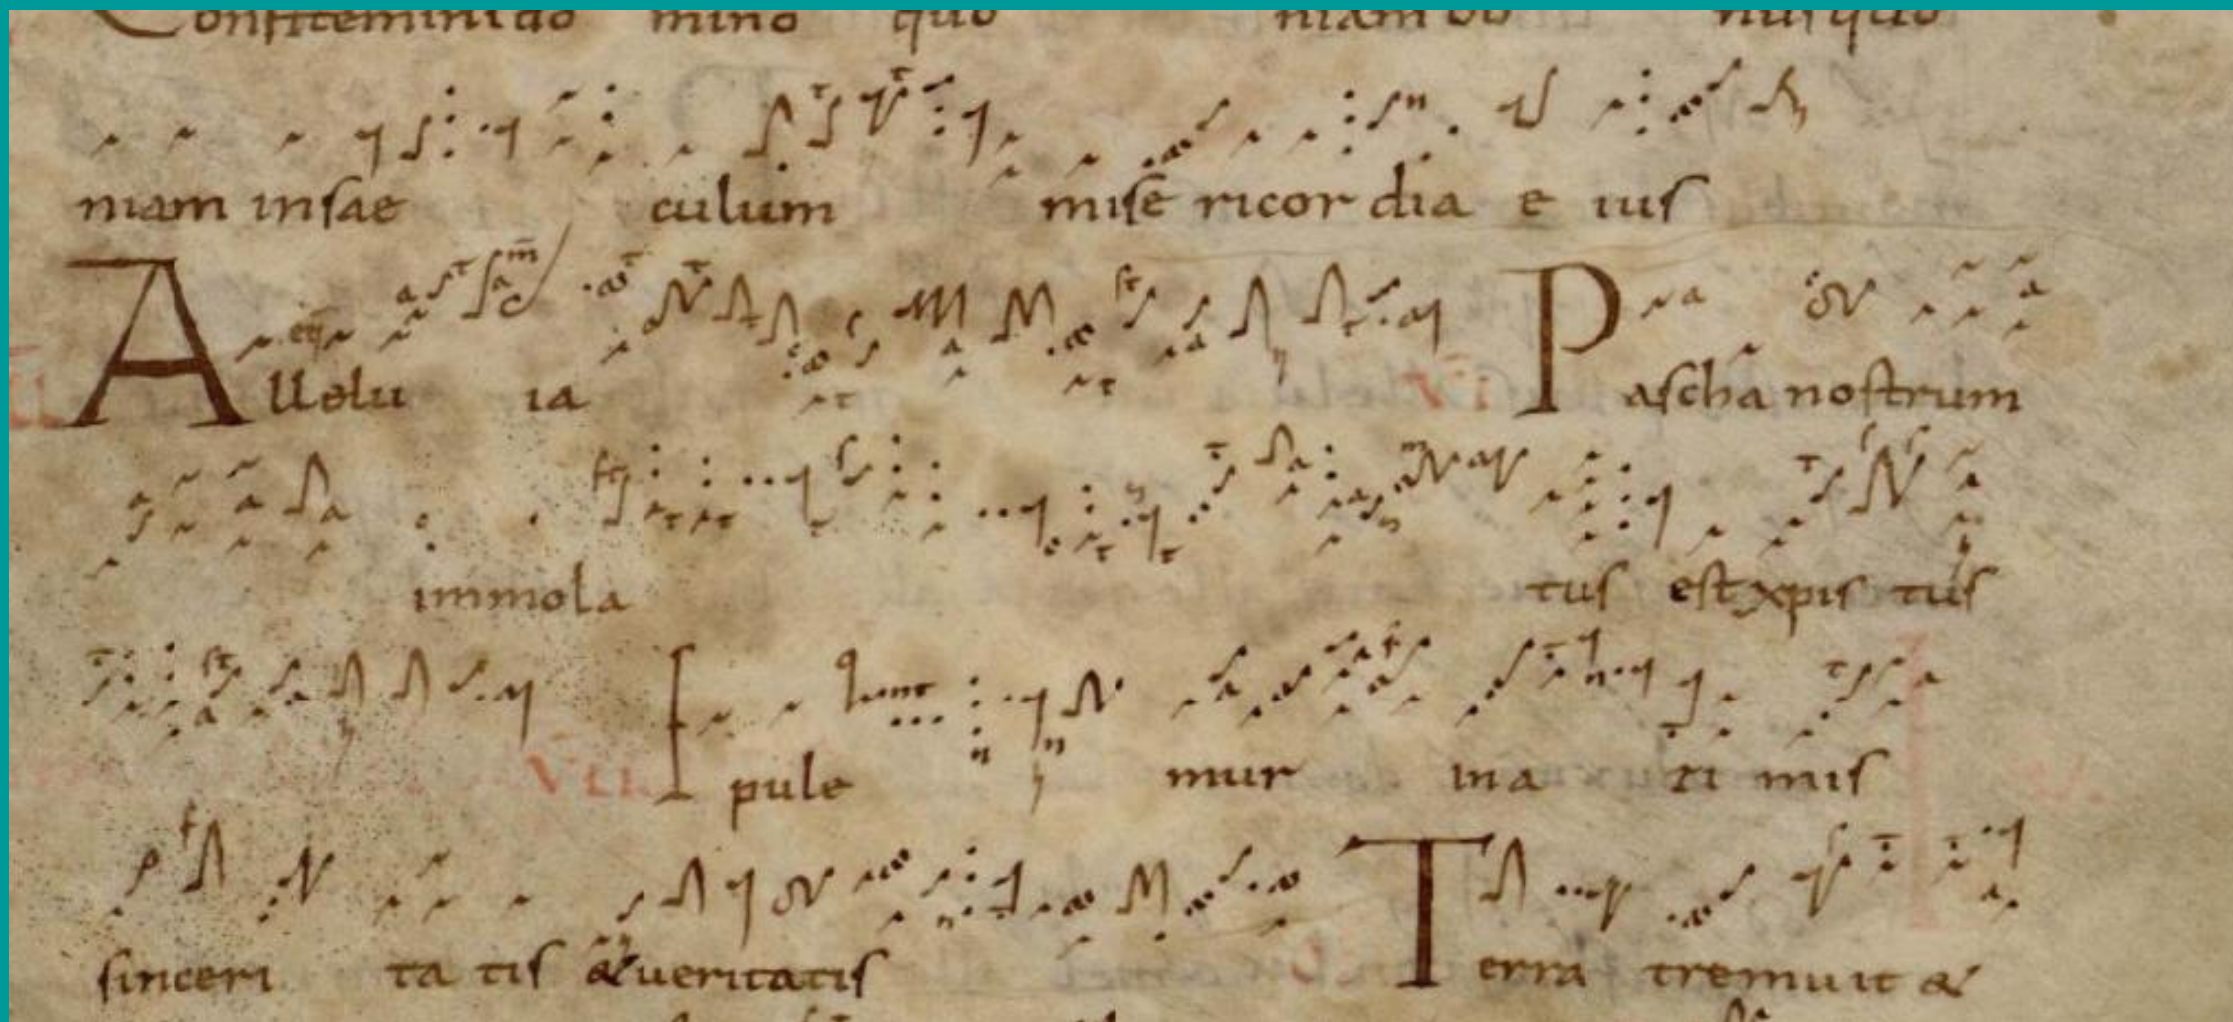 Confitemini do mino quo niam bo nus quo
niam insae culum mise ricor dia e ius
Allelu ia Pascha nostrum
immola tus est xpis tus
Epule mur in a zi mis
sinceri ta tis & ueritatis Terra tremuit &